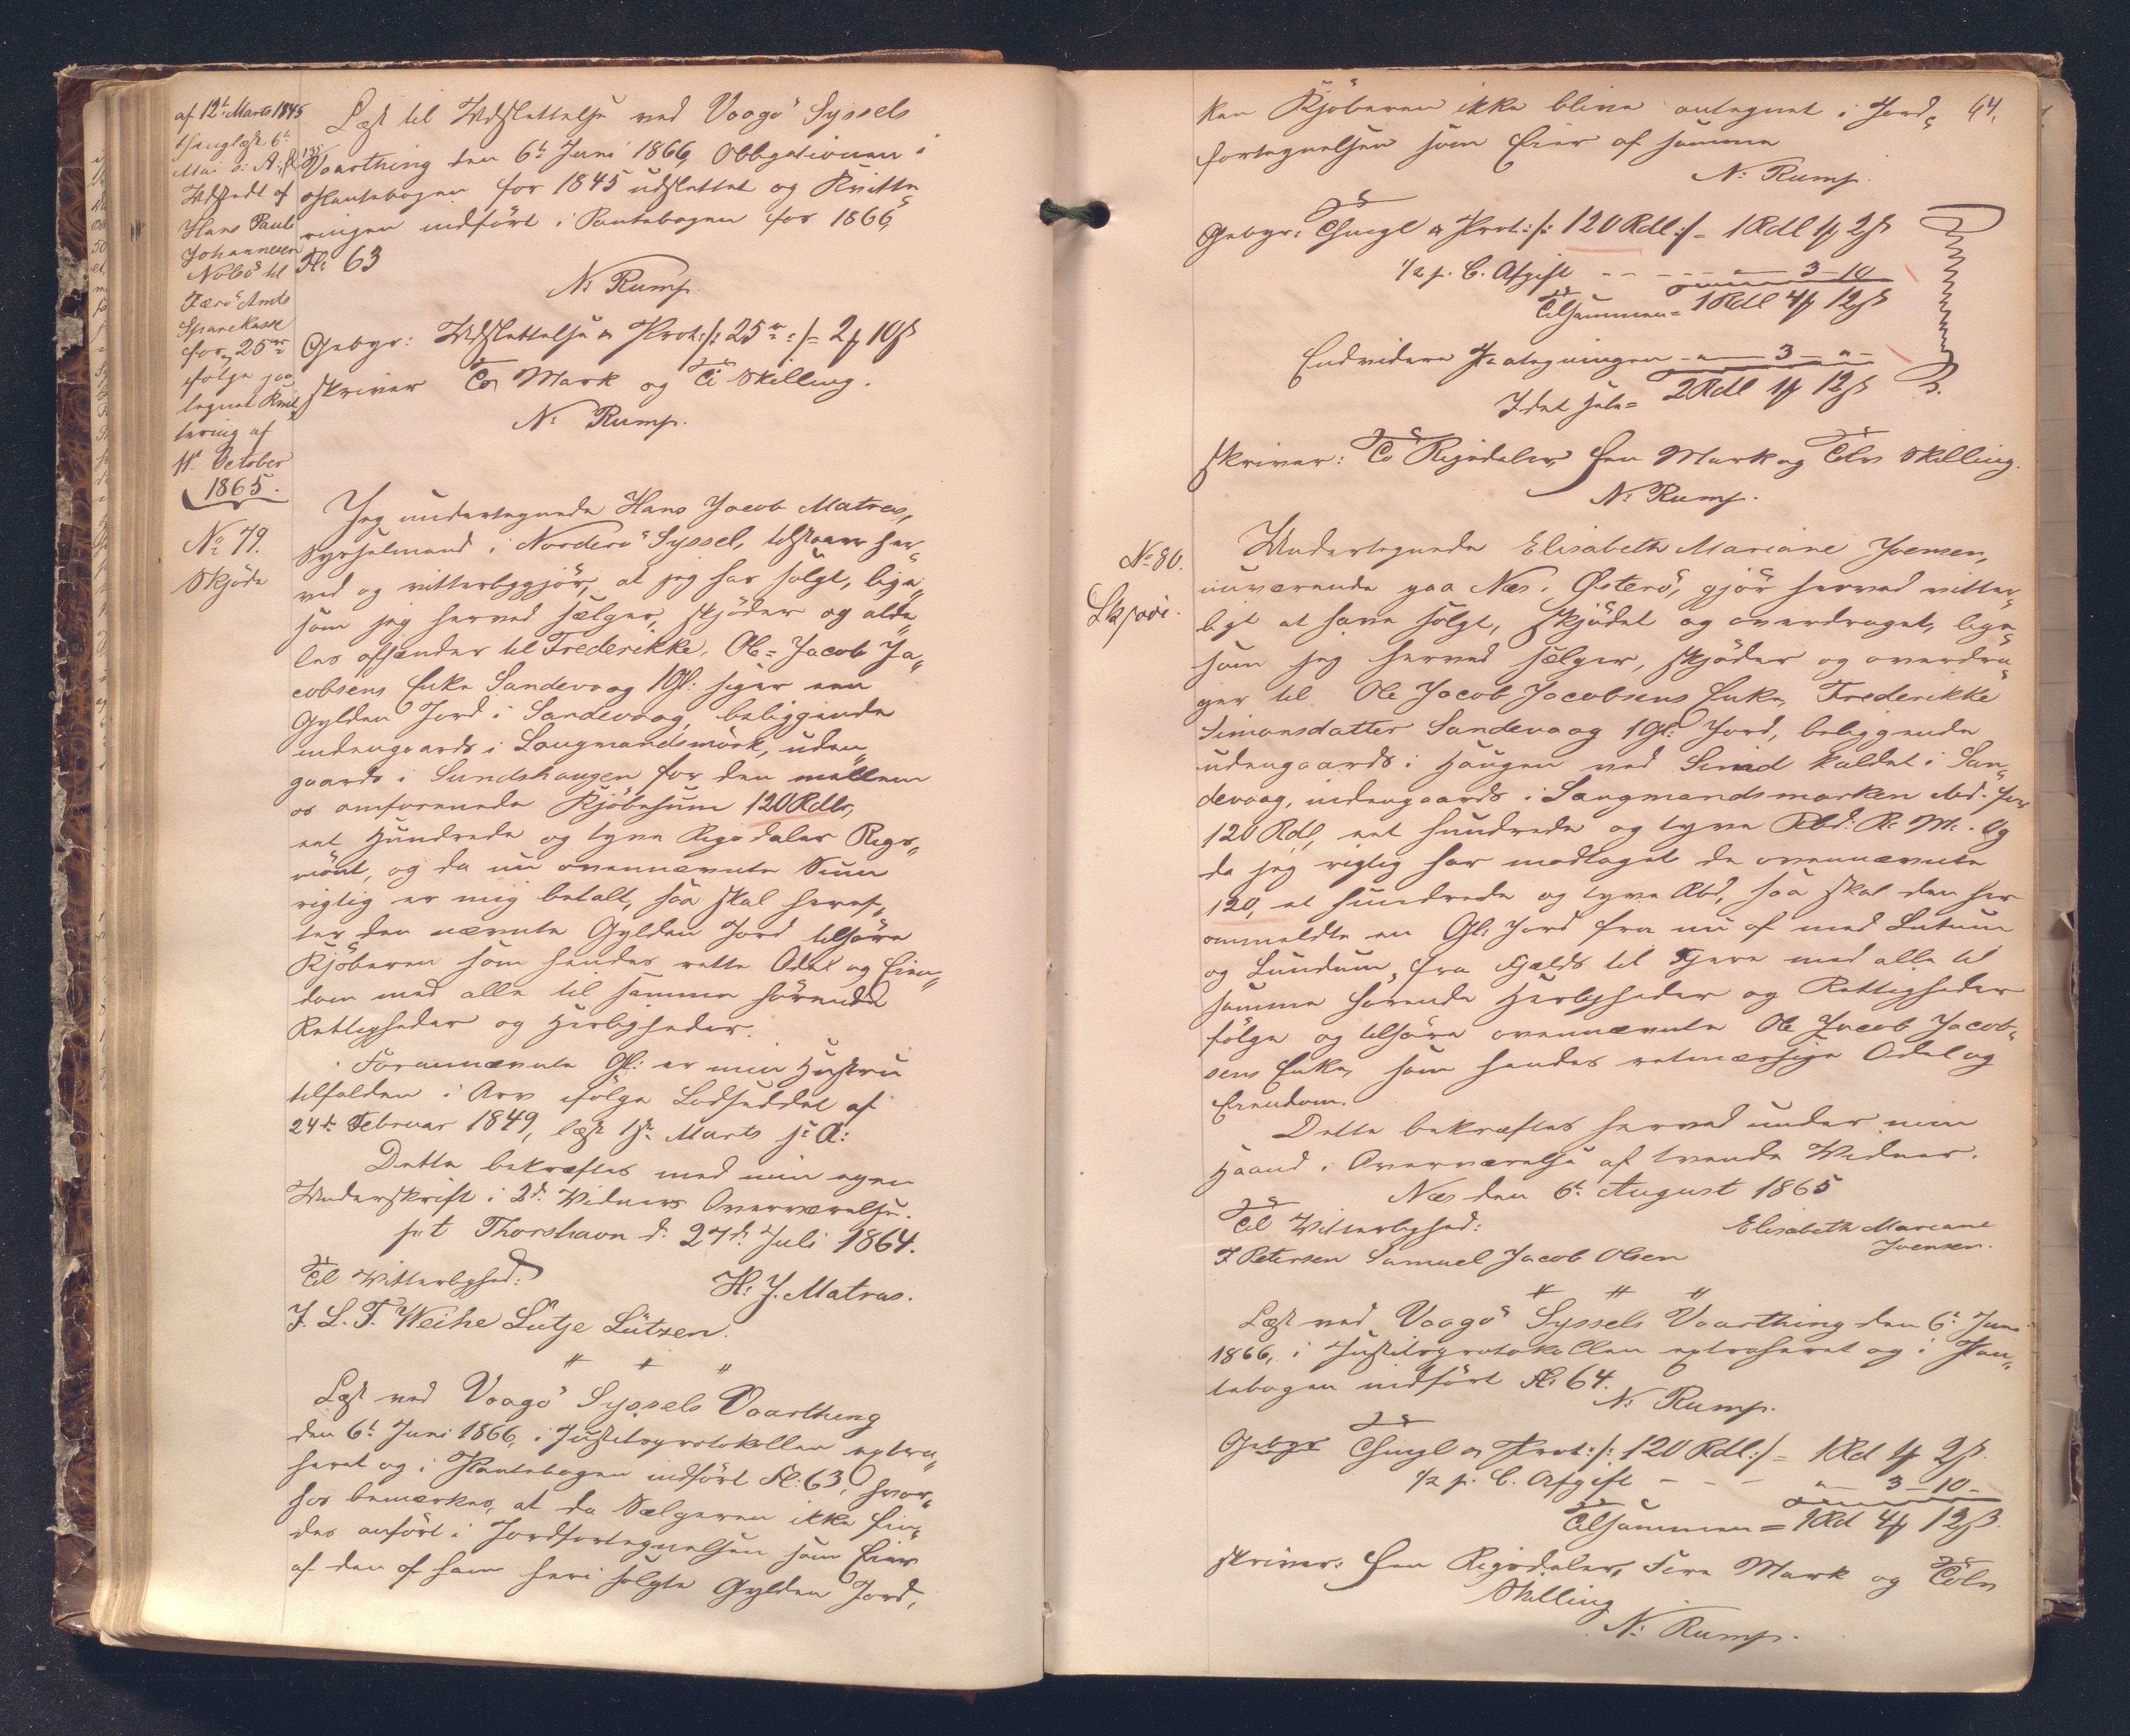 af 12t Marts 1845
thinglæst 6t
Mai s: A: fl 135
Udstedt af
Hans Pauli
Johannesen
Nolsö til
Færö Amts
Sparekasse
for 25 rd
ifølge paa
tegnet Kvit
tering af
11t October
1865.
Læst til Udslettelse ved Vaagö Syssels
Vaarthing den 6t Juni 1866, Obligationen i
Pantebogen for 1845 udslettet og Kvitte„
ringen indført i Pantebogen for 1866
Fl: 63
N: Rump.
Gebyr: Udslettelse & Prot: /: 25 rd :/ = 2 ƒ 10 ß
skriver To Mark og Ti Skilling.
N: Rump.
No 79.
Skjöde
Jeg undertegnede Hans Jacob Matras,
Sysselmand i Norderö Syssel, tilstaaer her„
ved og vitterliggjör, at jeg har solgt, lige„
som jeg herved sælger, skjöder og alde„
les afhænder til Frederikke, Ole Jacob Ja„
cobsens Enke Sandevaag 1 Gl: siger een
Gylden Jord i Sandevaag, beliggende
indengaards i Laugmandsmörk, uden„
gaards i Sundshaugen for den mellem
os omforenede Kjöbesum 120 Rdlr,
eet Hundrede og tyve Rigsdaler Rigs„
mönt, og da nu ovennævnte Sum
rigtig er mig betalt, saa skal heref„
ter den nævnte Gylden Jord tilhöre
Kjöberen som hendes rette Odel og Eien„
dom med alle til samme hörende
Rettigheder og Herligheder.
Forannævnte Gl: er min Hustru
tilfalden i Arv ifölge Lodseddel af
24d Februar 1849, læst 1st Marts s: A:
Dette bekræftes med min egen
Underskrift i 2d Vidners Overværelse.
p.t Thorshavn d. 27d Juli 1864.
Til Vitterlighed: H: J. Matras.
J. L. T. Weihe Lütje Lützen.
Læst ved Vaagö Syssels Vaarthing
den 6t Juni 1866, i Justitsprotokollen extra„
heret og i Pantebogen indfört Fl: 63, hvor„
hos bemærkes, at da Sælgeren ikke fin„
des anfört i Jordfortegnelsen som Eier
af den af ham heri solgte Gylden Jord,
64.
kan Kjöberen ikke blive antegnet i Jord„
fortegnelsen som Eier af samme
N: Rump.
Gebyr: Thingl & Prot: /: 120 Rdl :/ = 1 Rdl 1 ƒ 2 ß
1/2 p. C. Afgift - - - - 3 - 10
Tilsammen = 1 Rdl 4 ƒ 12 ß
Endvidere Paategningen - „ - 3 - „ -
I det Hele = 2 Rdl 1 ƒ 12 ß
skriver: To Rigsdaler, Een Mark og Tolv Skilling.
N: Rump.
No 80.
Skjöde.
Undertegnede Elisabeth Mariane Joensen,
nuværende paa Næs i Österö, gjör herved vitter„
ligt at have solgt, skjödet og overdraget, lige„
som jeg herved sælger, skjöder og overdra„
ger til Ole Jacob Jacobsens Enke, Frederikke
Simonsdatter Sandevaag 1 Gl: Jord, beliggende
udengaards i Haugen ved Sund kaldet i San„
devaag, indengaards i Laugmandsmarken ibd. for
120 Rdl, eet hundrede og tyve Rbd: R: M:. Og
da jeg rigtig har modtaget de ovennævnte
120, et hundrede og tyve Rbd, saa skal den her
ommeldte en Gl: Jord fra nu af med Lutum
og Lundum, fra Fjelds til Fjære med alle til
samme hörende Herligheder og Rettigheder
fölge og tilhöre ovennævnte Ole Jacob Jacob„
sens Enke, som hendes retmæssige Odel og
Eiendom.
Dette bekræftes herved under min
Haand i Overværelse af tvende Vidner.
Næs den 6t August 1865
Til Vitterlighed: Elisabeth Mariane
Joensen.
J Petersen Samuel Jacob Olsen
Læst ved Vaagö Syssels Vaarthing den 6t Juni
1866, i Justitsprotokollen extraheret og i Pan„
tebogen indfört Fl: 64.
N: Rump.
Gebyr Thingl & Prot: /: 120 Rdl :/ = 1 Rd 1 ƒ 2 ß.
1/2 p. C. Afgift - - - „ 3 - 10 -
Tilsammen = 1 Rd 4 ƒ 12 ß.
skriver: Een Rigsdaler, Fire Mark og Tolv
Skilling
N: Rump.